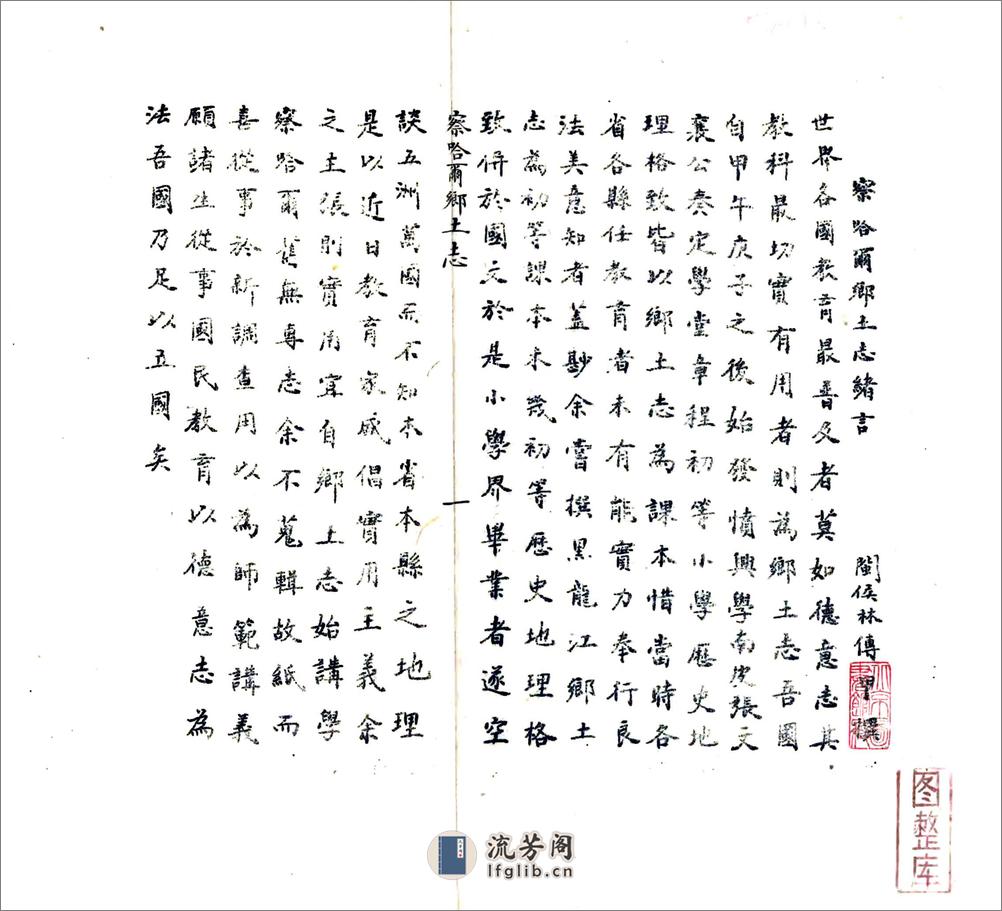 察哈爾鄉土志緒言
閩侯林傳甲撰
世界各國教育最普及者莫如德意志其
教科最切實有用者則為鄉土志吾國
自甲午庚子之後始發憤興學南皮張文
襄公奏定學堂章程初等小學歷史地
理格致皆以鄉土志為課本惜當時各
省各縣任教育者未有能實力奉行良
法美意知者蓋尠余嘗撰黑龍江鄉土
志為初等課本未幾初等歷史地理格
致併於國文於是小學界畢業者遂空
察哈爾鄉土志
一
談五洲萬國而不知本省本縣之地理
是以近日教育家咸倡實用主義余
之主張則實用宜自鄉土志始講學
察哈爾舊無專志余不蒐輯故紙而
喜從事於新調查用以為師範講義
願諸生從事國民教育以德意志為
法吾國乃足以立國矣
图整库
流芳阁
lfglib.cn